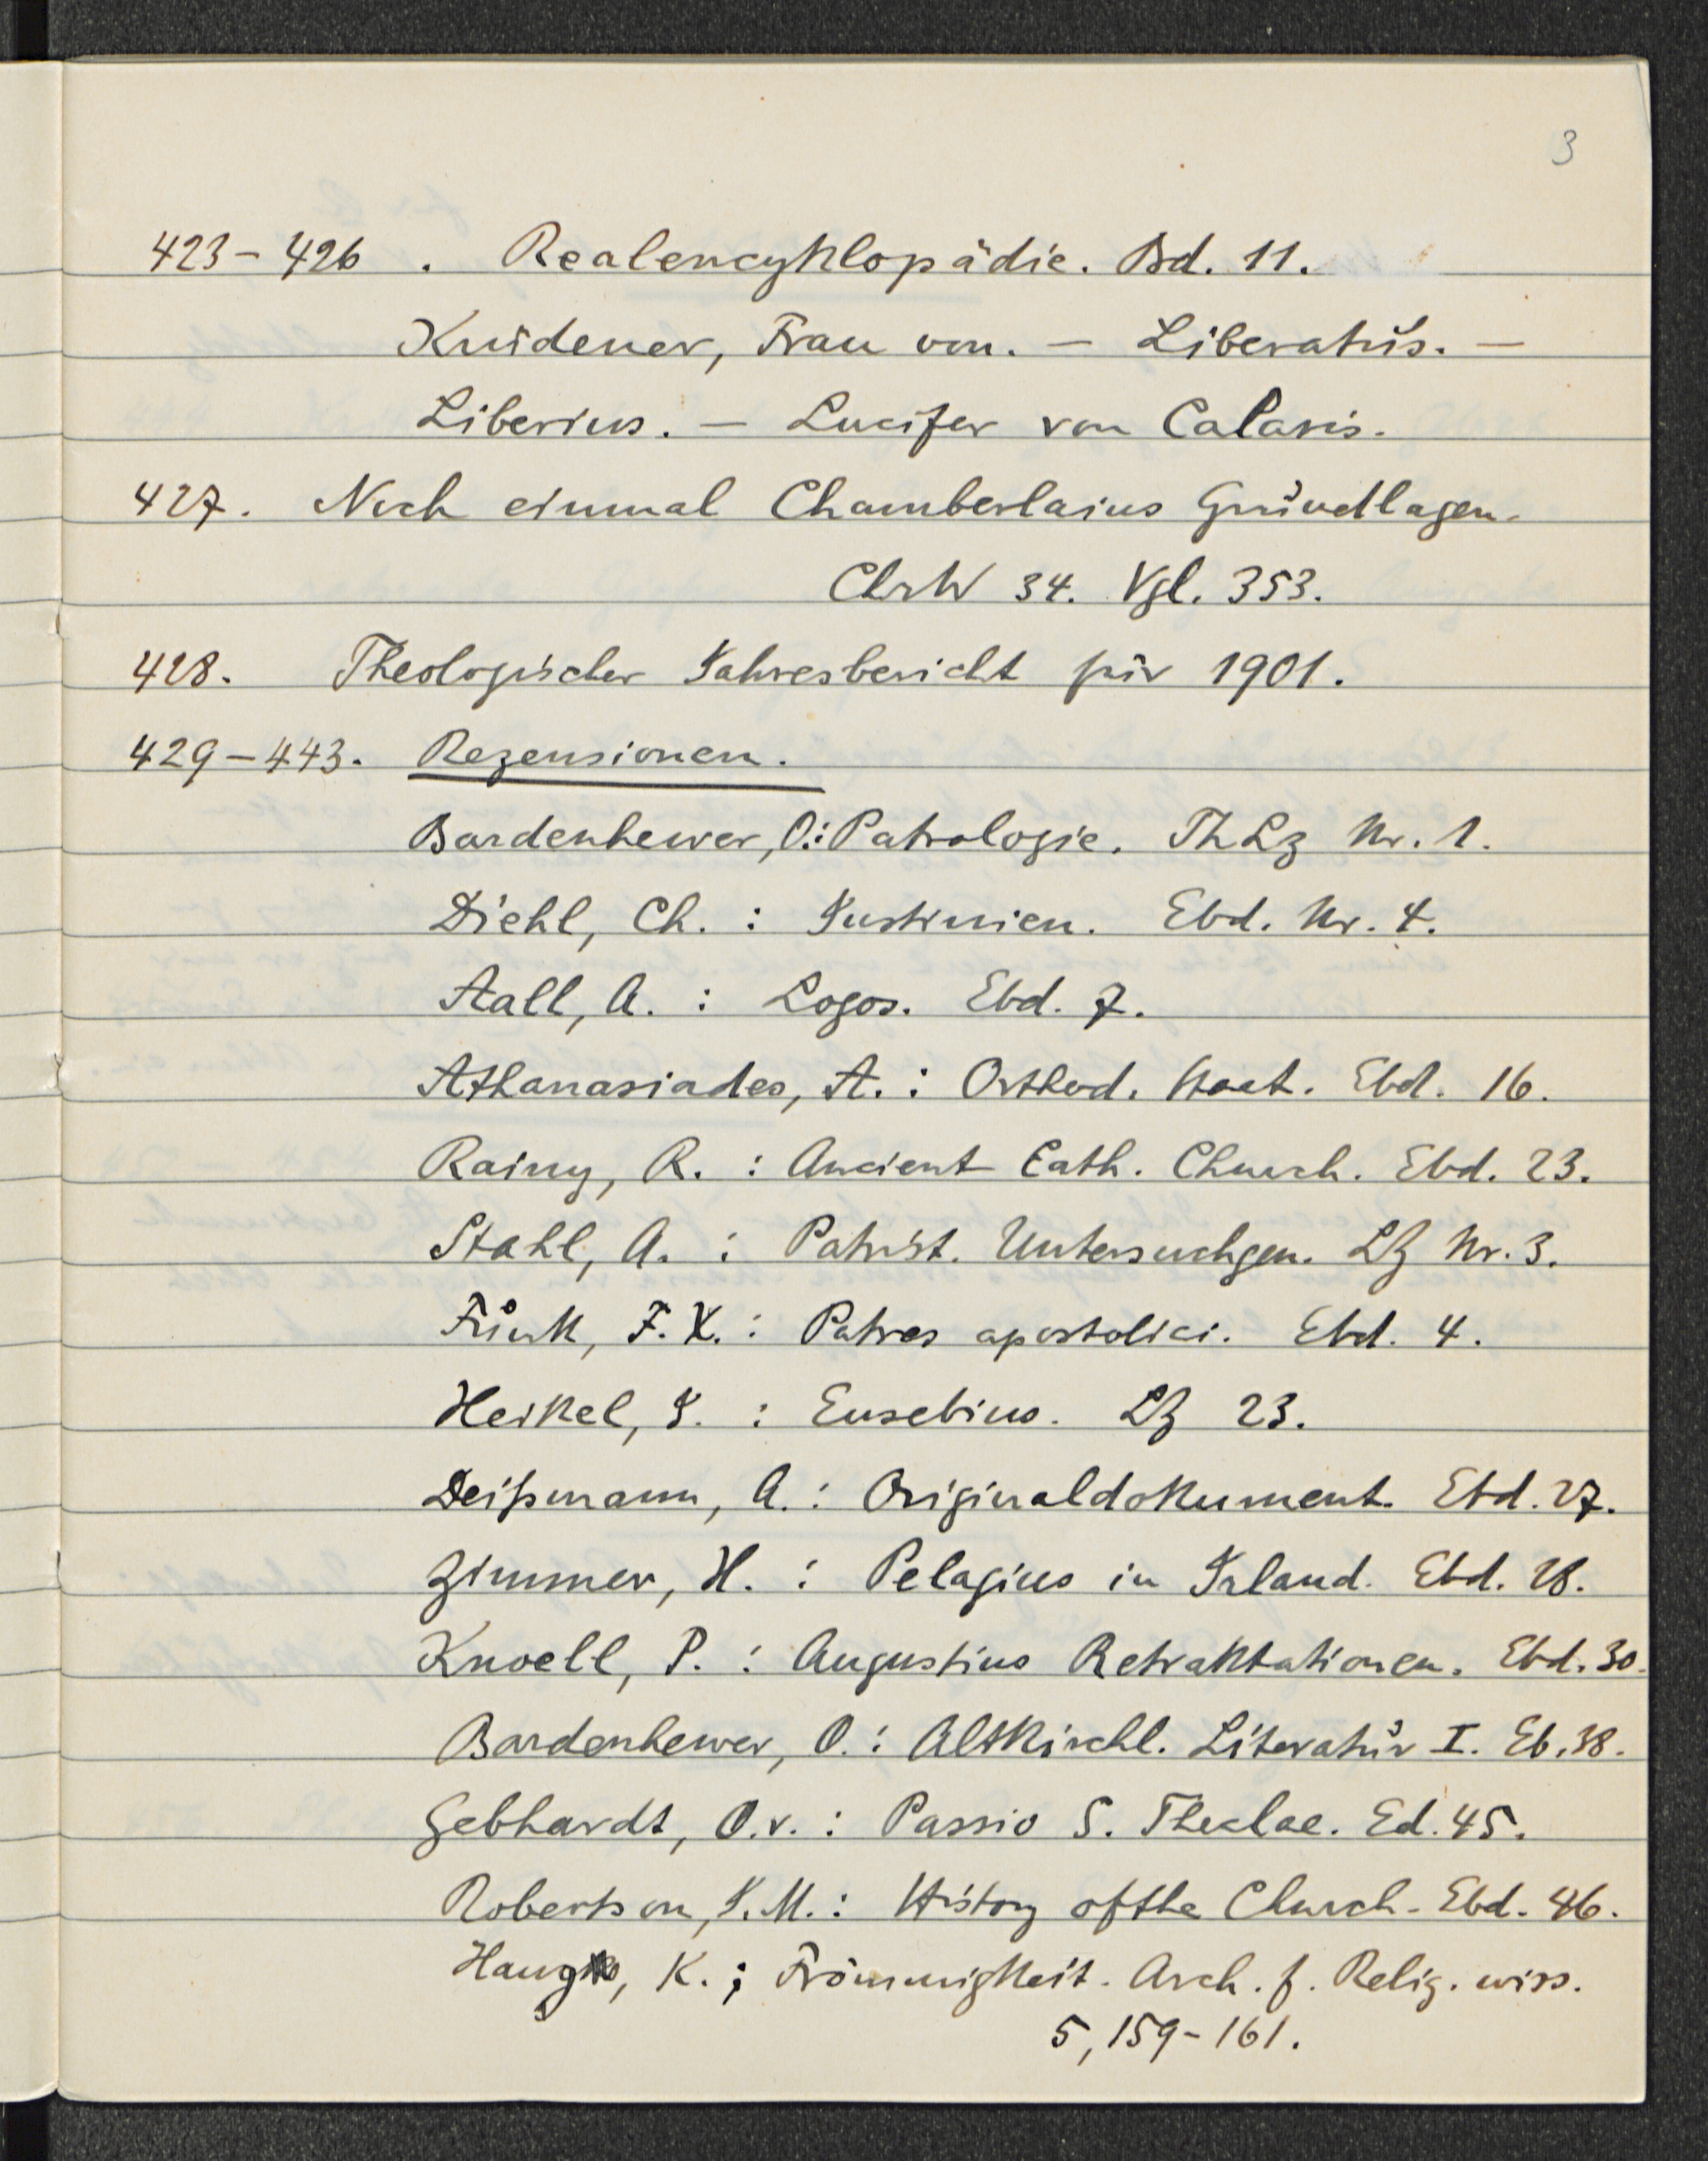 3
423-426. Realencyklopädie. Bd. 11.
Krüdener, Frau von. — Liberatus. —
Liberius. — Lucifer von Calaris.
427. Noch einmal Chamberlains Grundlagen.
ChrW 34. Vgl. 353.
428. Theologischer Jahresbericht für 1901.
429-443. Rezensionen.
Bardenhewer, O.: Patrologie. ThLz Nr. 1.
Diehl, Ch.: Justinien. Ebd. Nr. 4.
Aall, A.: Logos. Ebd. 7.
Athanasiades, A.: Orthod. Ebd. 16.
Rainy, R.: Ancient Cath. Church. Ebd. 23.
Stahl, A.: Patrist. Untersuchgen. LZ Nr. 3.
Funk, F. X.: Patres apostolici. Ebd. 4.
Heikel, J.: Eusebius. LZ 23.
Deißmann, A.: Originaldokument. Ebd. 27.
Zimmer, H.: Pelagius in Irland. Ebd. 28.
Knoell, P.: Augustins Retraktationen. Ebd. 30.
Bardenhewer, O.: Altkirchl. Literatur I. Eb. 38.
Gebhardt, O. v.: Passio S. Theclae. Ed. 45.
Robertson, J. M.: History of the Church. Ebd. 46.
K.; Frömmigkeit. Arch. f. Relig. wiss.
5, 159-161.